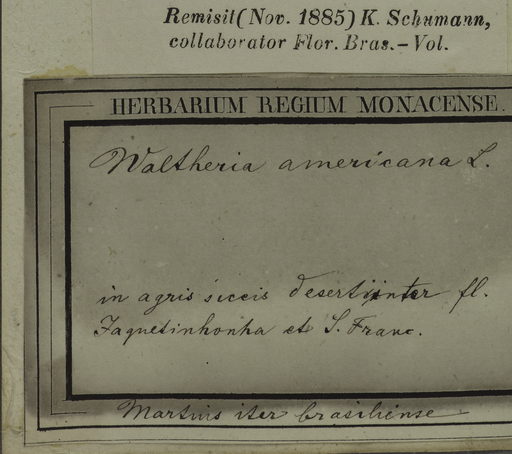 Remisit (Nov. 1885) K. Schumann,
collaborator Flor. Bras. – Vol.
HERBARIUM REGIUM MONACENSE.
Waltheria americana L.
in agris siccis deserti inter fl.
Jaquetinhonha et S. Franc.
Martius iter brasiliense